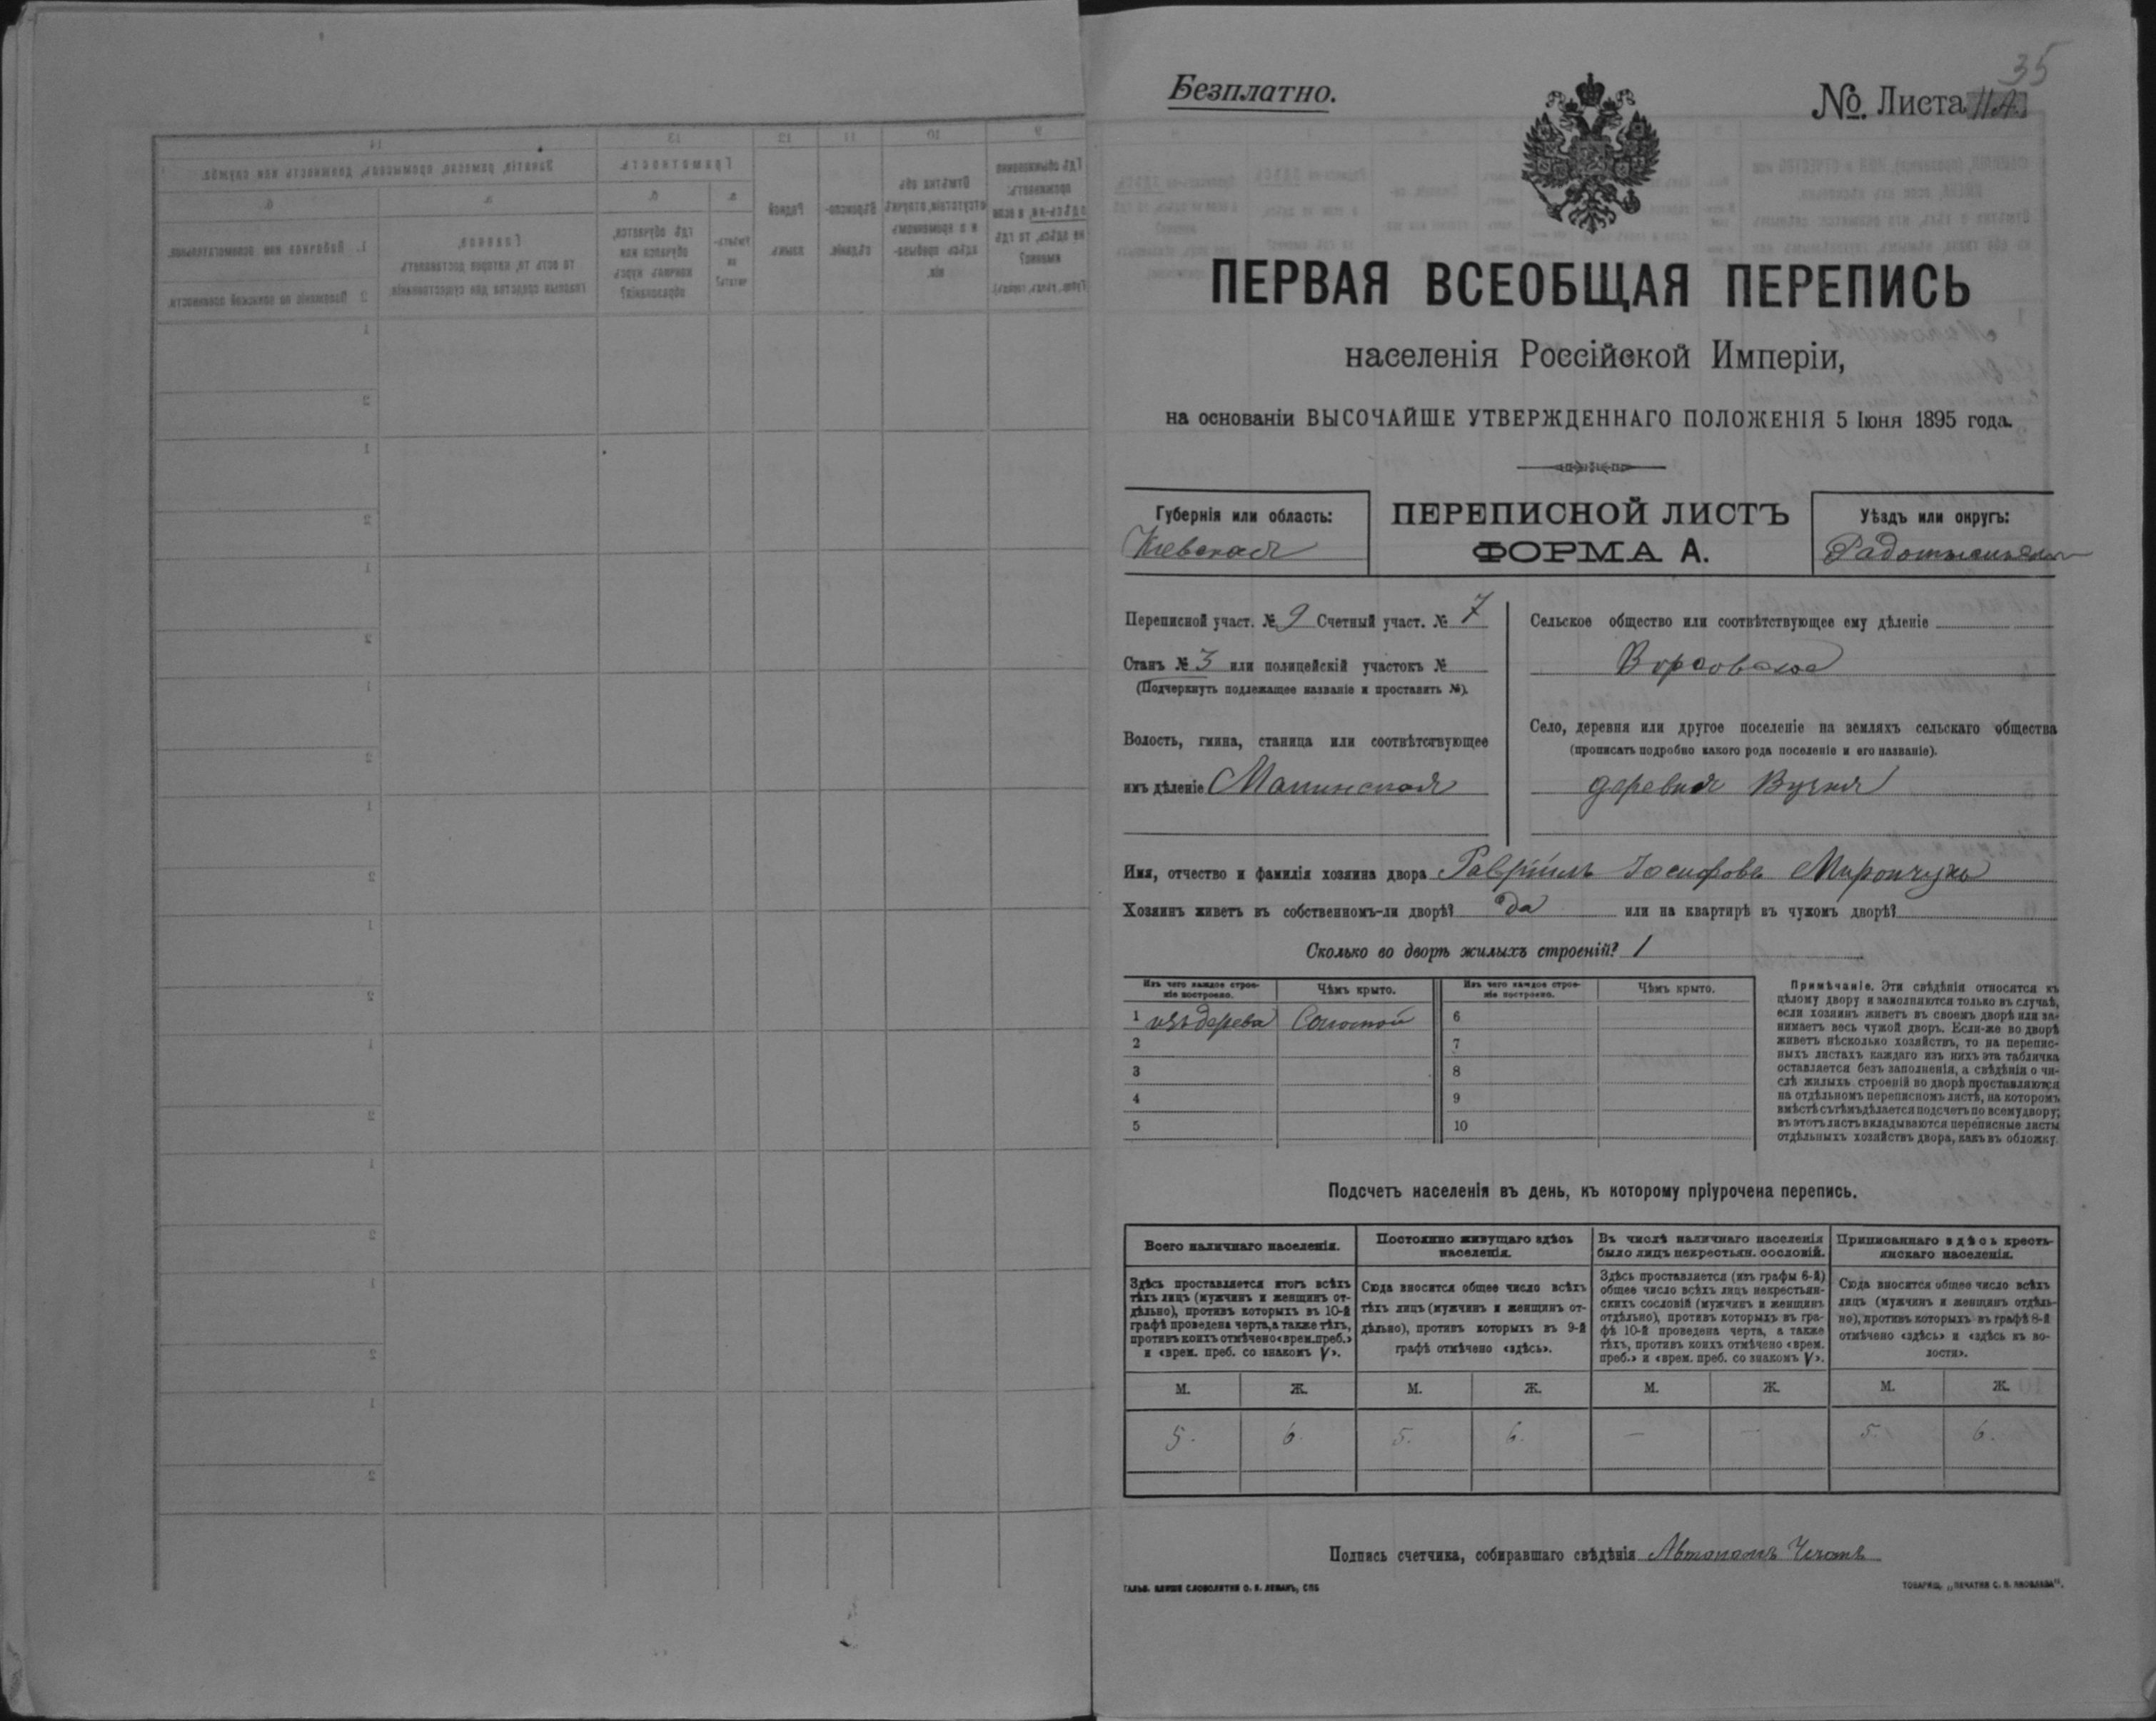 35
Безплатно.
№. Листа 11А.
ПЕРВАЯ ВСЕОБЩАЯ ПЕРЕПИСЬ
населенія Россійской Имперіи,
на основаніи ВЫСОЧАЙШЕ УТВЕРЖДЕННАГО ПОЛОЖЕНІЯ 5 Іюня 1895 года.
Губернія или область:
Кіевская
ПЕРЕПИСНОЙ ЛИСТЪ
ФОРМА А.
Уѣздъ или округъ:
Радомысльскій
Переписной участ. № 9 Счетный участ. № 7
Станъ № 3 или полицейскій участокъ №
(Подчеркнуть подлежащее названіе и проставить №).
Волость, гмина, станица или соотвѣтствующее
имъ дѣленіе Малинская
Сельское общество или соотвѣтствующее ему дѣленіе
Ворсовское
Село, деревня или другое поселеніе на земляхъ сельскаго общества
(прописать подробно какого рода поселеніе и его названіе).
деревня
Имя, отчество и фамилія хозяина двора Гавріилъ Іосифовъ Мирончукъ
Хозяинъ живетъ въ собственномъ-ли дворѣ? да или на квартирѣ въ чужомъ дворѣ?
Сколько во дворѣ жилыхъ строеній? 1
Изъ чего каждое строе-
ніе построено.
Чѣмъ крыто.
Изъ чего каждое строе-
ніе построено.
Чѣмъ крыто.
1 изъ дерева Соломой 6
2 7
3 8
4 9
5 10
Примѣчаніе. Эти свѣдѣнія относятся къ
цѣлому двору и заполняются только въ случаѣ,
если хозяинъ живетъ въ своемъ дворѣ или за-
нимаетъ весь чужой дворъ. Если-же во дворѣ
живетъ нѣсколько хозяйствъ, то на перепис-
ныхъ листахъ каждаго изъ нихъ эта табличка
оставляется безъ заполненія, а свѣдѣнія о чи-
слѣ жилыхъ строеній во дворѣ проставляются
на отдѣльномъ переписномъ листѣ, на которомъ
вмѣстѣ съ тѣмъ дѣлается подсчетъ по всему двору;
въ этотъ листъ вкладываются переписные листы
отдѣльныхъ хозяйствъ двора, какъ въ обложку.
Подсчетъ населенія въ день, къ которому пріурочена перепись.
Всего наличнаго населенія.
Постоянно живущаго здѣсь
населенія.
Въ числѣ наличнаго населенія
было лицъ некрестьян. сословій.
Приписаннаго здѣсь кресть-
янскаго населенія.
Здѣсь проставляется итогъ всѣхъ
тѣхъ лицъ (мужчинъ и женщинъ от-
дѣльно), противъ которыхъ въ 10-й
графѣ проведена черта, а также тѣхъ,
противъ коихъ отмѣчено «врем. преб.»
и «врем. преб. со знакомъ V».
Сюда вносится общее число всѣхъ
тѣхъ лицъ (мужчинъ и женщинъ от-
дѣльно), противъ которыхъ въ 9-й
графѣ отмѣчено «здѣсь».
Здѣсь проставляется (изъ графы 6-й)
общее число всѣхъ лицъ некрестьян-
скихъ сословій (мужчинъ и женщинъ
отдѣльно), противъ которыхъ въ гра-
фѣ 10-й проведена черта, а также
тѣхъ, противъ коихъ отмѣчено «врем.
преб.» и «врем. преб. со знакомъ V».
Сюда вносится общее число всѣхъ
лицъ (мужчинъ и женщинъ отдѣль-
но), противъ которыхъ въ графѣ 8-й
отмѣчено «здѣсь» и «здѣсь въ во-
лости».
М. Ж. М. Ж. М. Ж. М. Ж.
5. 6. 5. 6. — — 5. 6.
Подпись счетчика, собиравшаго свѣдѣнія
ГАЛЬВ. КЛИШЕ СЛОВОЛИТНИ О. И. ЛЕМАНЪ, СПБ
ТОВАРИЩ. „ПЕЧАТНЯ С. П. ЯКОВЛЕВА".